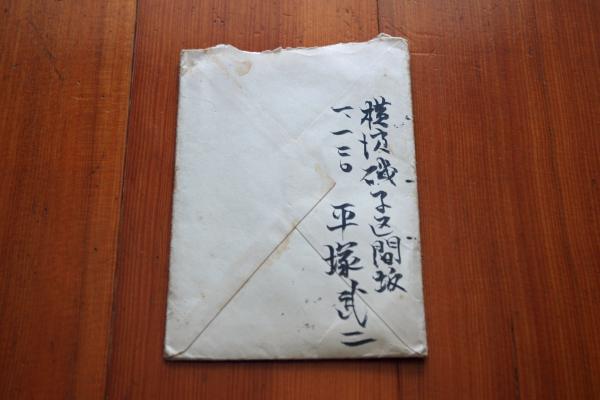 横浜磯子区間坂
一、一二〇 平塚武二